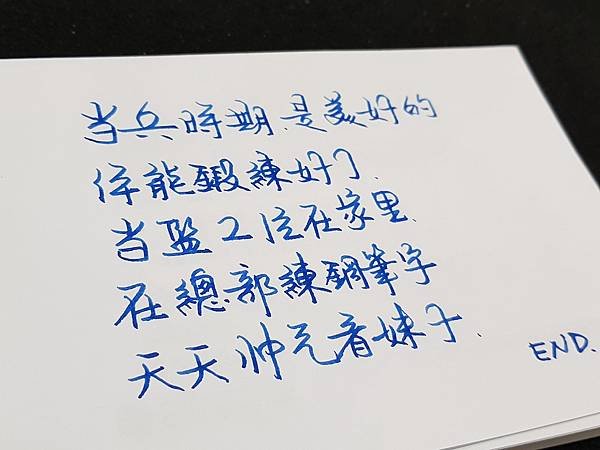 当兵時期.是美好的
体能鍛練好了.
当監工住在家里.
在總部練鋼筆字
天天帅看妹子.
END.